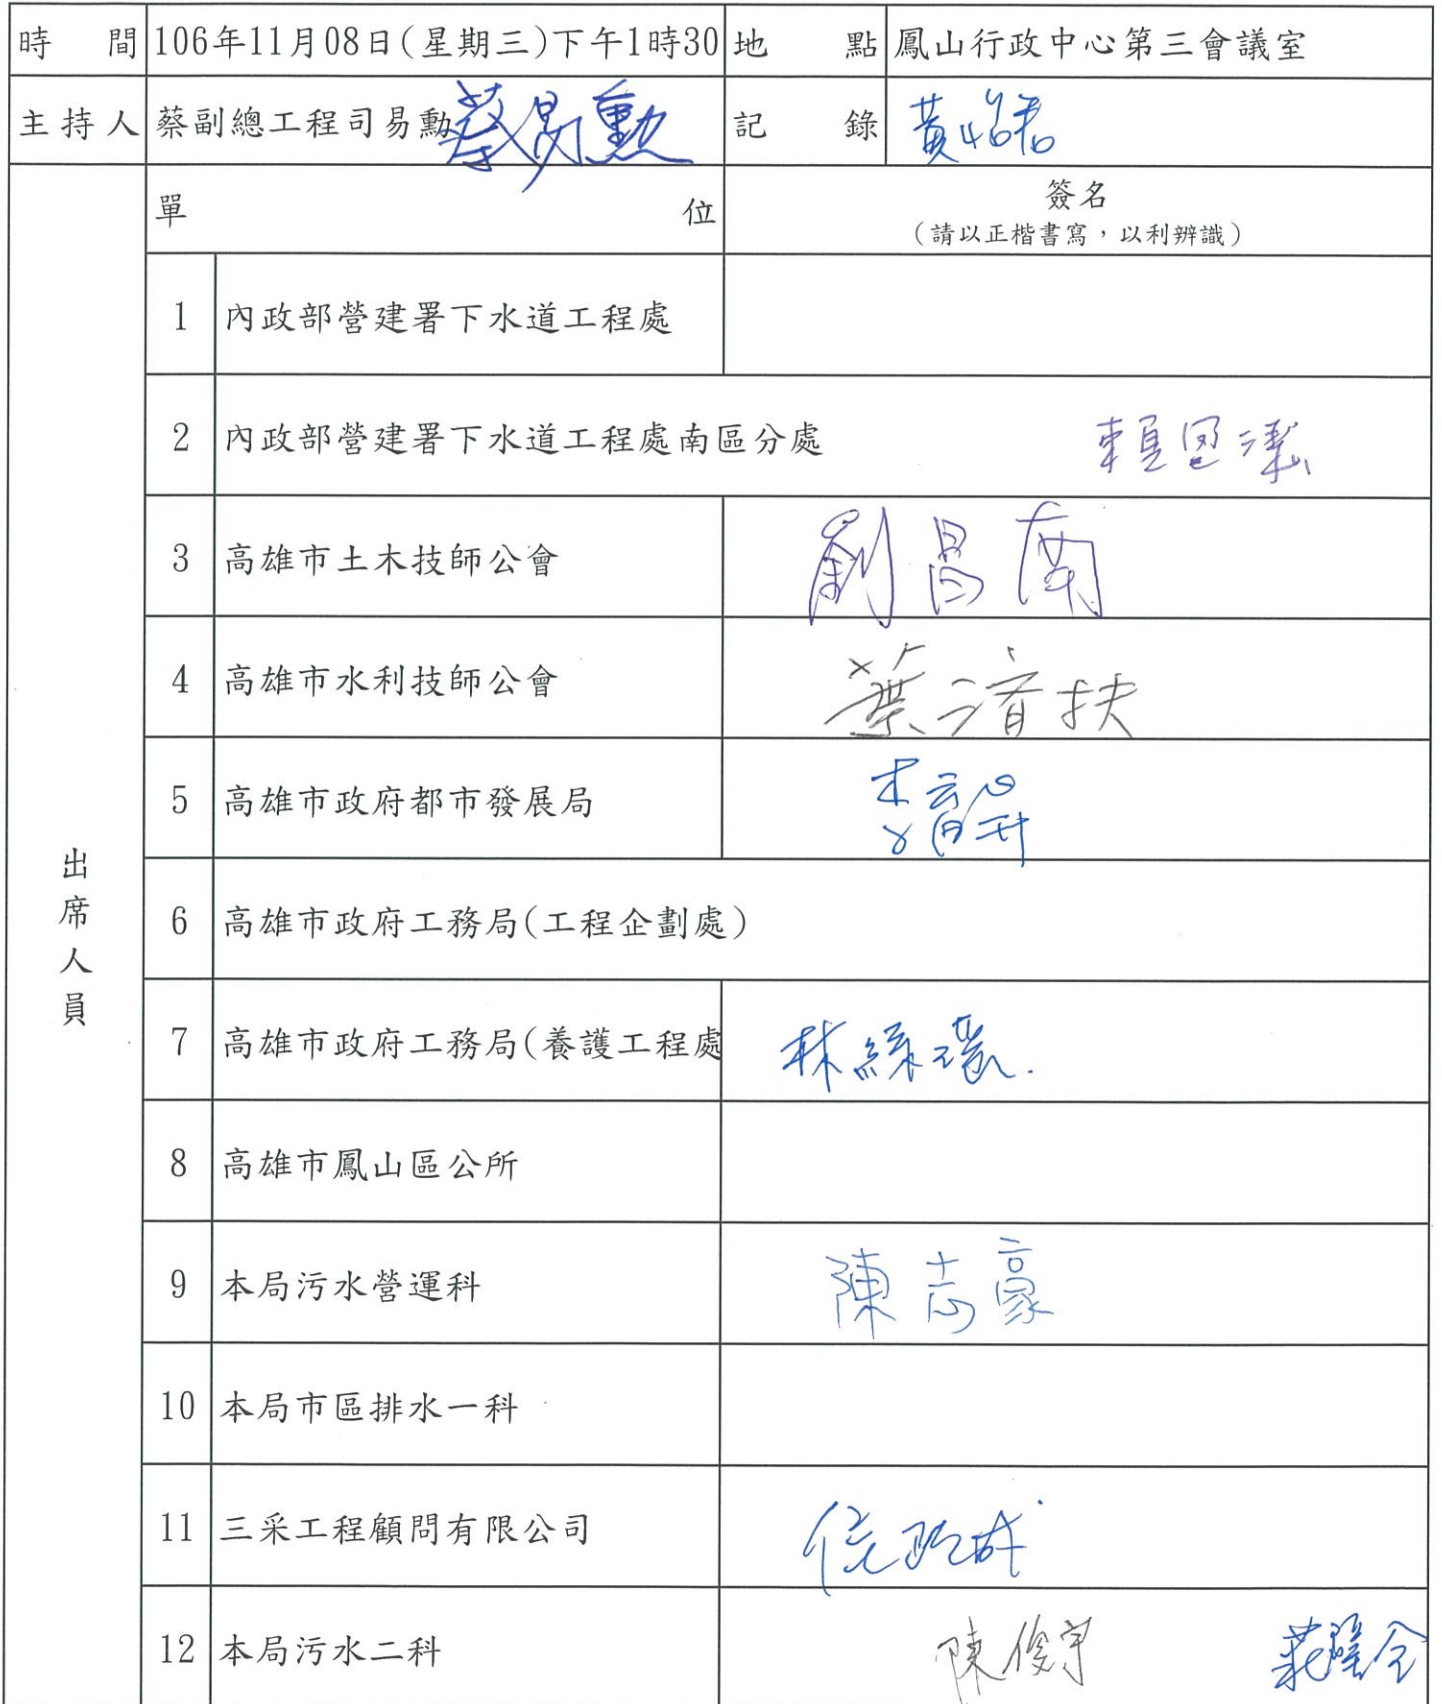 時 間 106年11月08日(星期三)下午1時30 地 點 鳳山行政中心第三會議室
主持人 蔡副總工程司易勳 蔡易勳 記 錄 黃
單 位 簽名
(請以正楷書寫，以利辨識)
出席人員
1 內政部營建署下水道工程處
2 內政部營建署下水道工程處南區分處 賴
3 高雄市土木技師公會 劉昌南
4 高雄市水利技師公會 葉清扶
5 高雄市政府都市發展局
6 高雄市政府工務局(工程企劃處)
7 高雄市政府工務局(養護工程處 林綠環
8 高雄市鳳山區公所
9 本局污水營運科 陳志豪
10 本局市區排水一科
11 三采工程顧問有限公司
12 本局污水二科 陳俊宇 莊